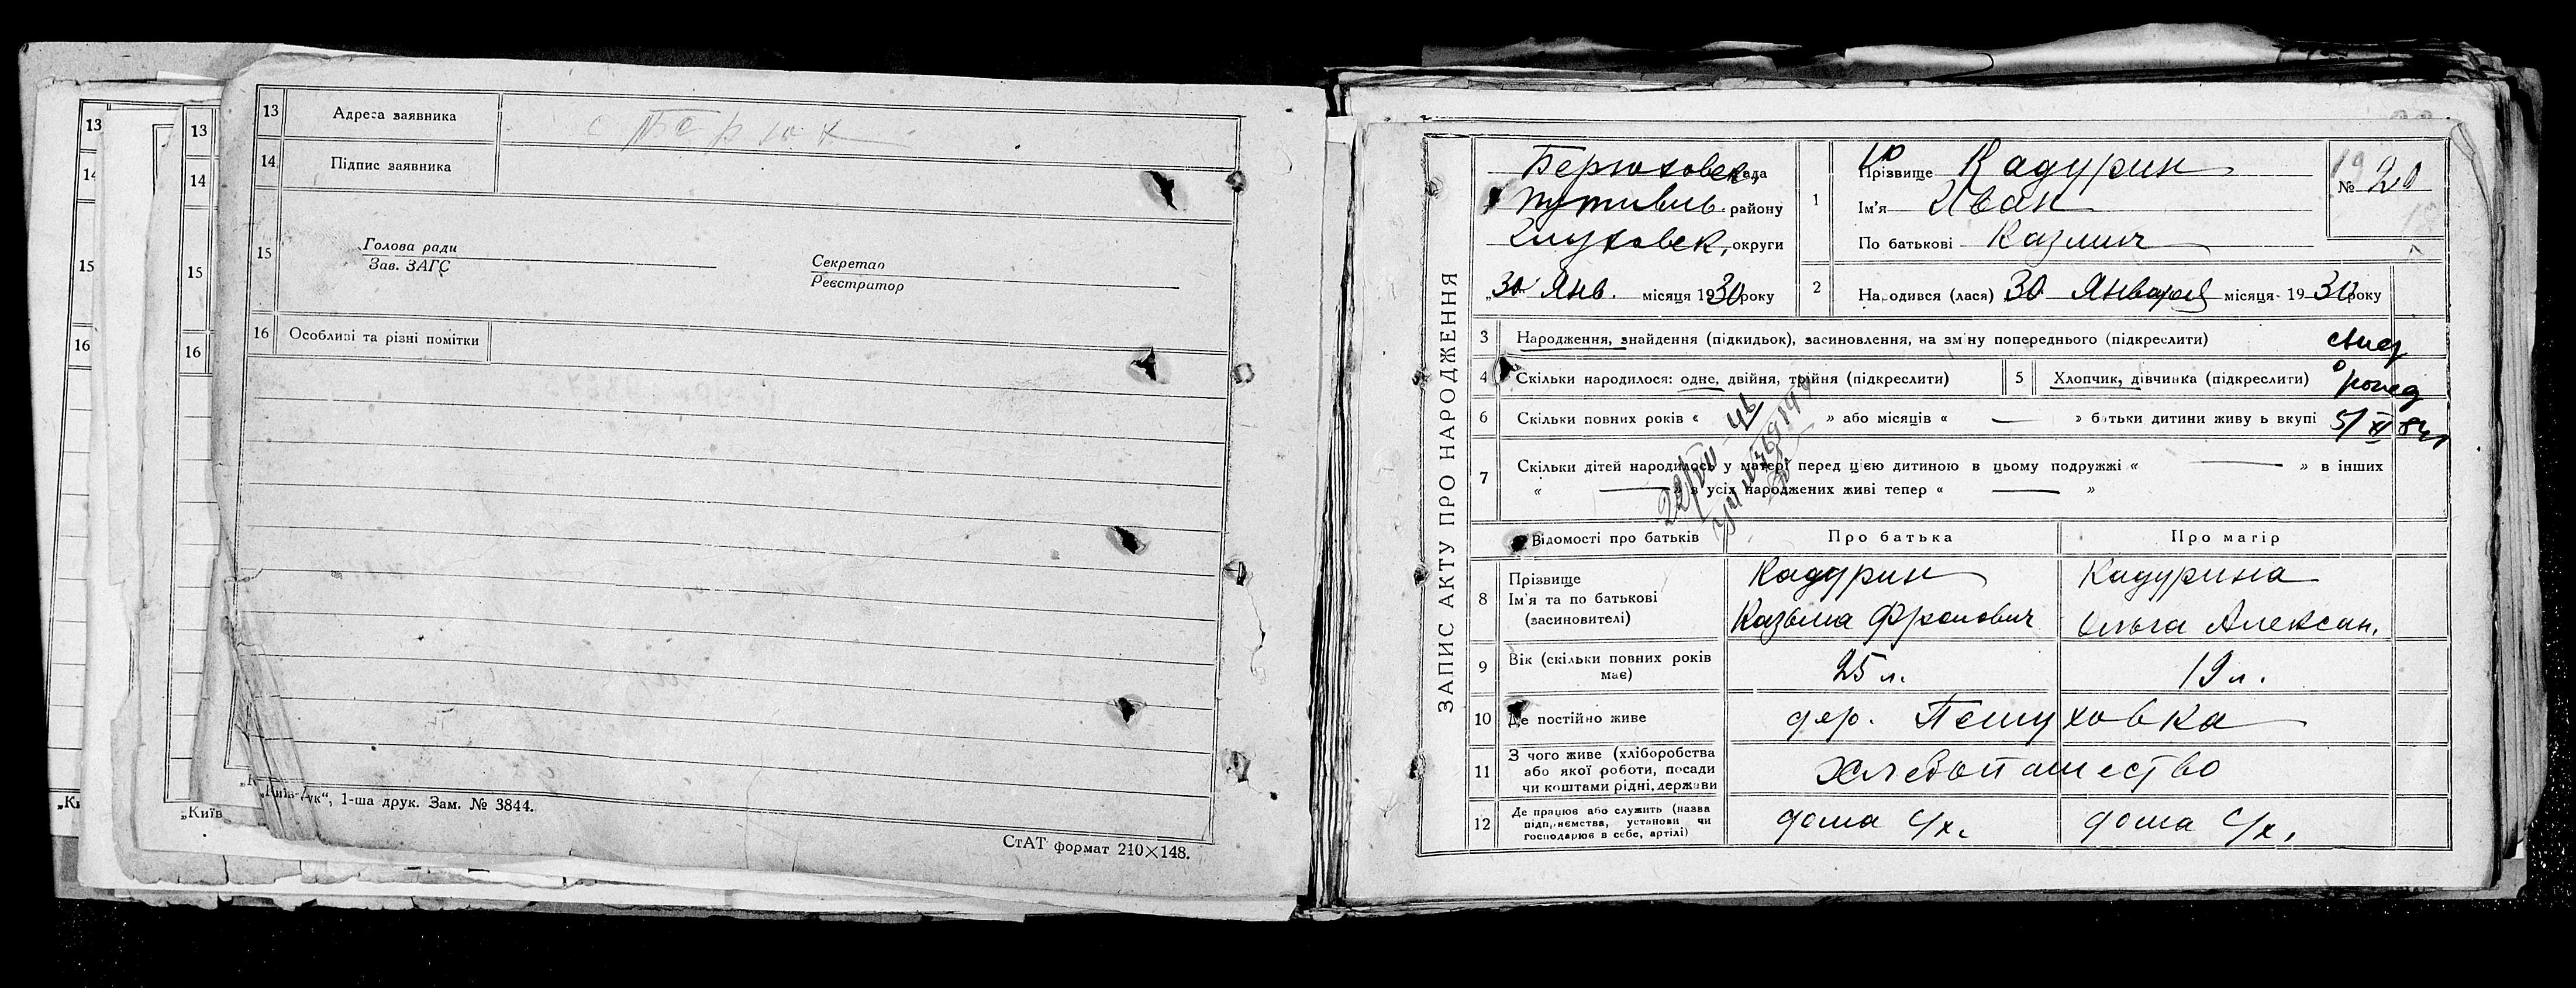 13
14
15
16
„Ки
13
14
15
16
„Київ
13 Адреса заявника
14 Підпис заявника
15 Голова ради
Зав. ЗАГС
Секретар
Реєстратор
16 Особливі та різні помітки
„Київ-Друк“, 1-ша друк. Зам. № 3844.
СтАТ формат 210×148.
ЗАПИС АКТУ ПРО НАРОДЖЕННЯ
Берюховск, рада
Путивль району
Глуховск, округи
„30 Янв. місяця 1930 року
1 Прізвище Кадурин
Ім'я Иван
По батькові Казмич
№ 20
2 Народився (лася) 30 Января місяця 1930 року
3 Народження, знайдення (підкидьок), засиновлення, на зміну попереднього (підкреслити)
4 Скільки народилося: одне, двійня, трійня (підкреслити)
5 Хлопчик, дівчинка (підкреслити)
6 Скільки повних років « — » або місяців « — » батьки дитини живуть вкупі
7 Скільки дітей народилось у матері перед цією дитиною в цьому подружжі « — » в інших
« — » в усіх народжених живі тепер « — »
Відомості про батьків Про батька Про матір
8 Прізвище Кадурин Кадурина
Ім'я та по батькові
(засиновителі) Казьма Фролович Ольга Алексан.
9 Вік (скільки повних років має) 25 л. 19 л.
10 Де постійно живе дер.
11 З чого живе (хліборобства
або якої роботи, посади
чи коштами рідні, держави Хлебопашество
12 Де працює або служить (назва
підприємства, установи чи
господарює в себе, артілі) дома с/х. дома с/х.